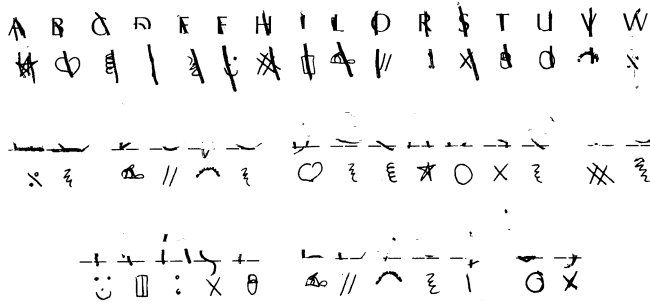 A B C D E F H I L O R S T U V W